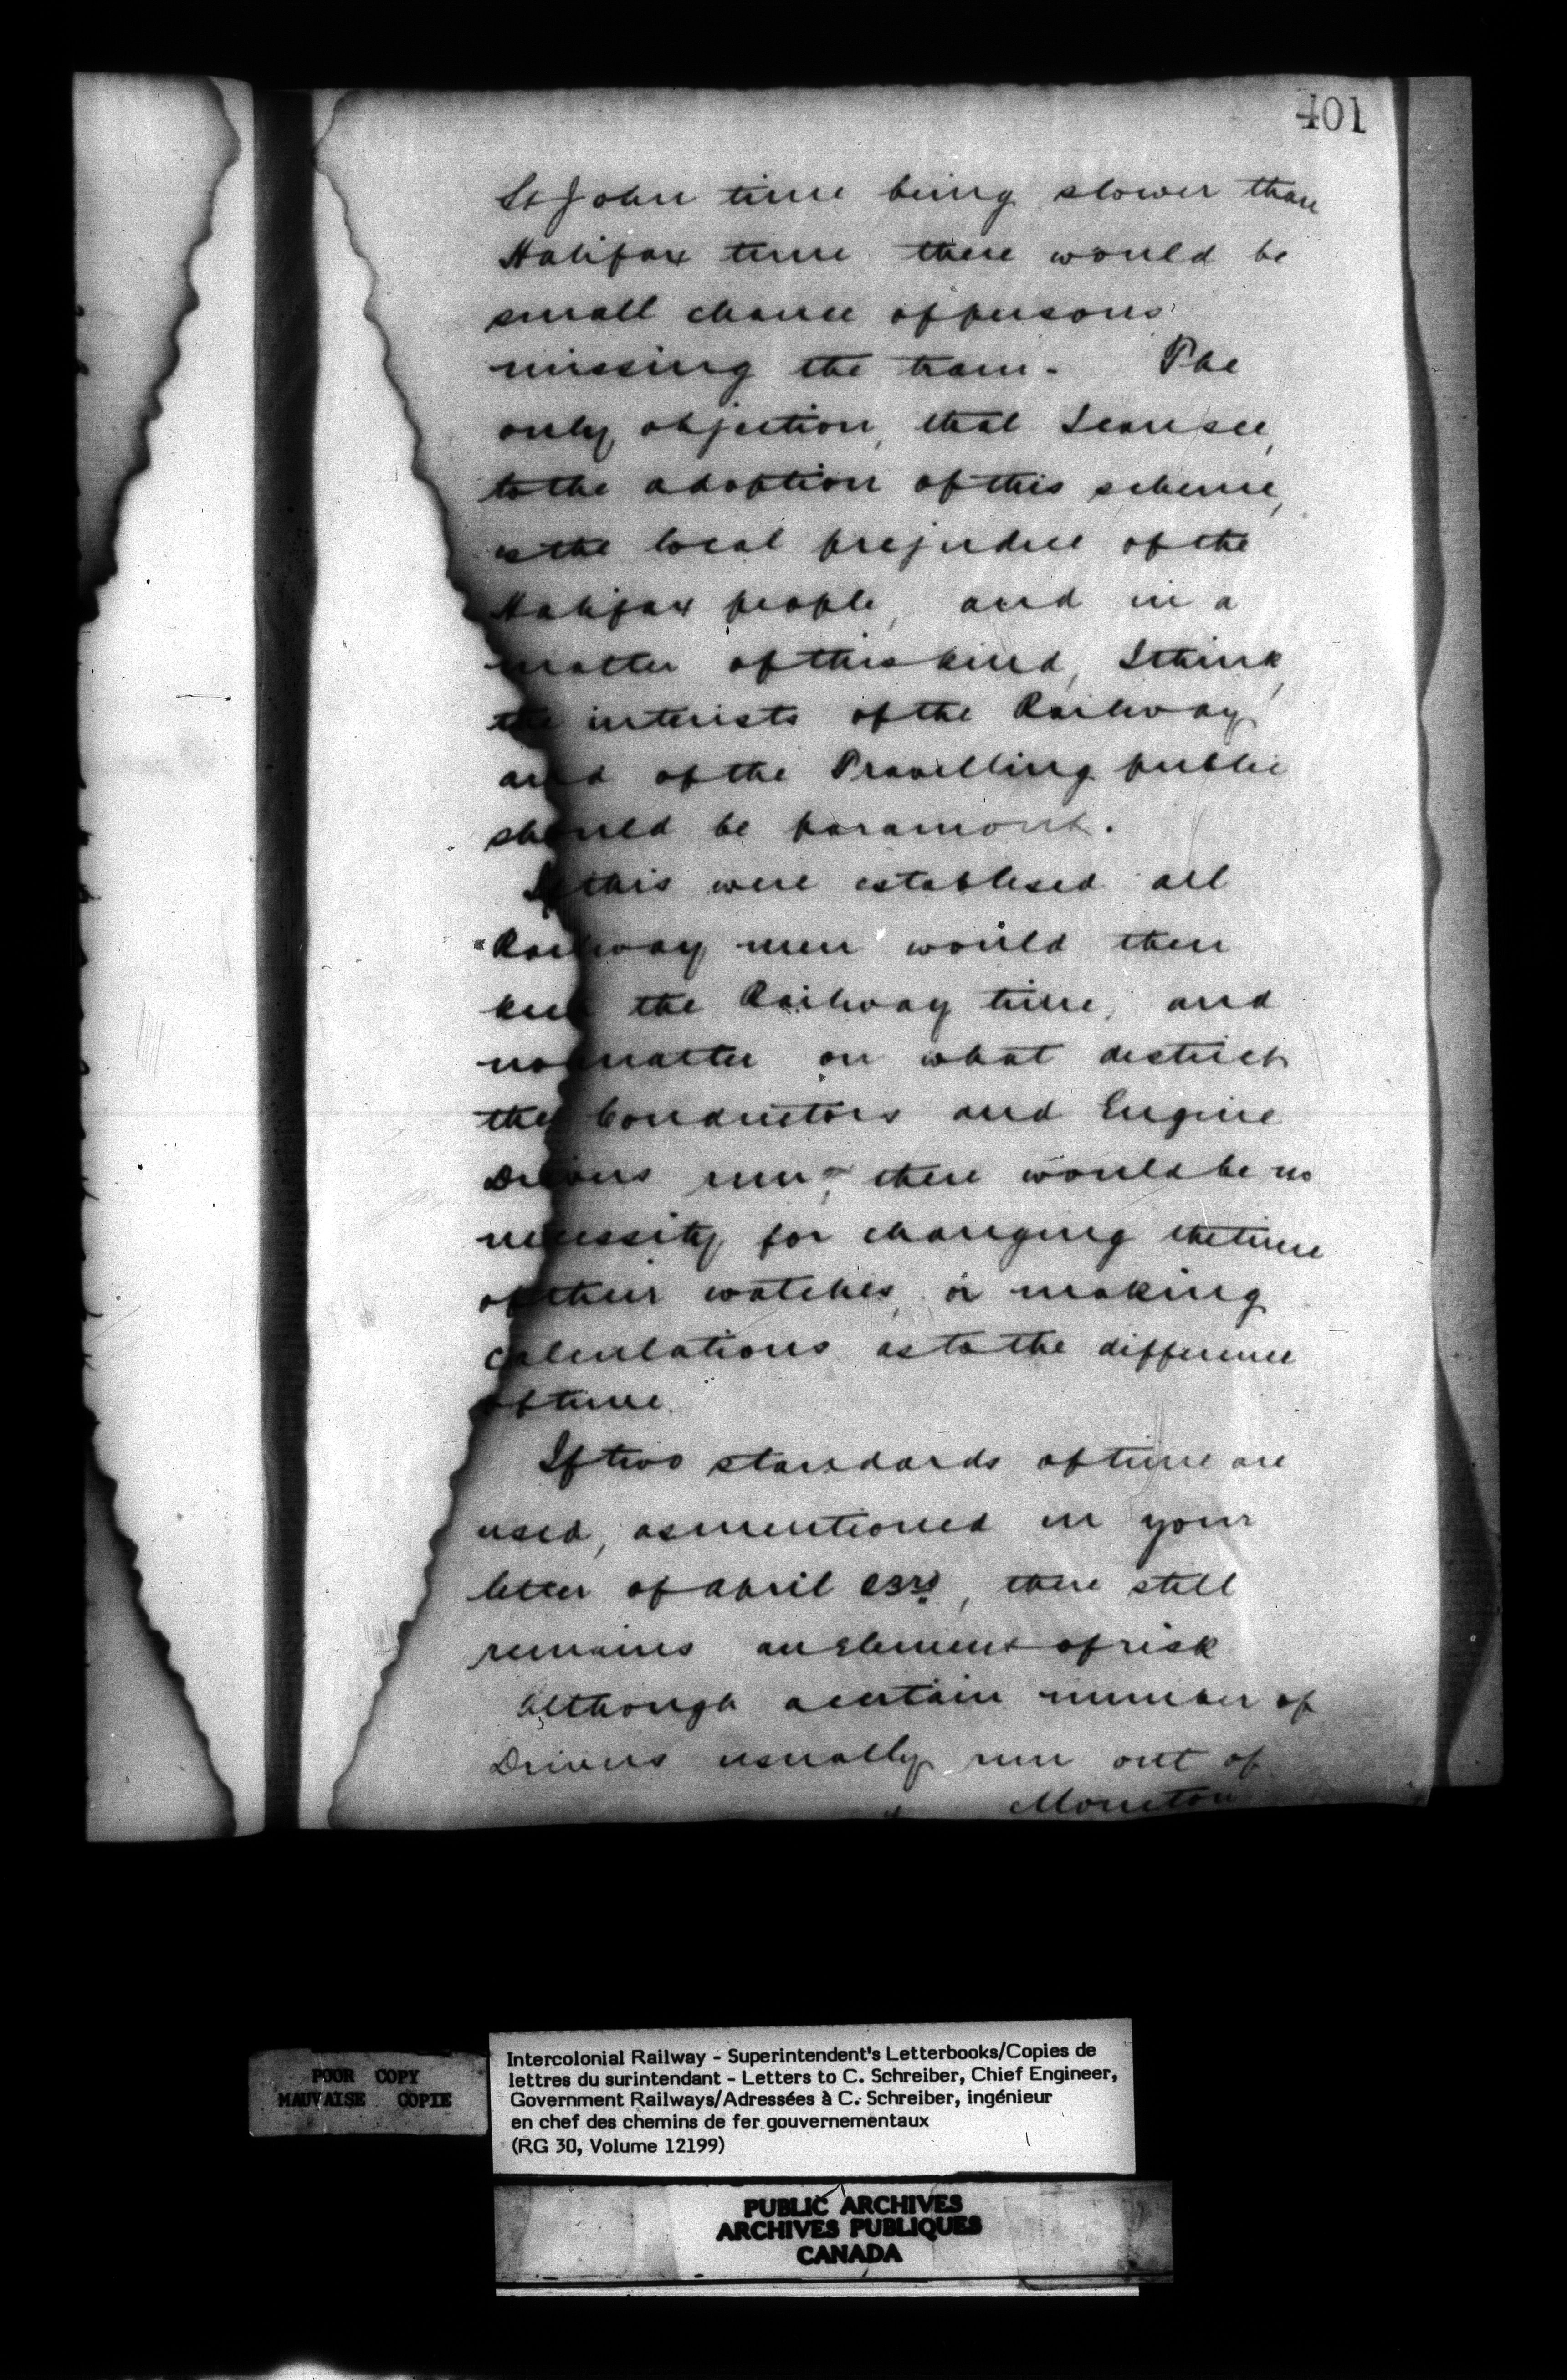 401
St John time being slower than
Halifax time there would be
small chance of persons
missing the train - The
only objection, that I can see,
to the adoption of this scheme,
is the local prejudice of the
Halifax people, and in a
matter of this kind, I think,
the interests of the Railway
and of the Travelling public
should be paramount.
If this were establised all
Railway men would then
keep the Railway time, and
no matter on what district
the Conductors and Engine
Drivers run, there would be no
necessity for changing the time
of their watches, or making
calculations as to the difference
of time.
If two standards of time are
used, as mentioned in your
letter of April 23rd, there still
remains an Element of risk
Although a certain number of
Drivers usually run out of
Moncton
POOR COPY
MAUVAISE COPIE
Intercolonial Railway - Superintendent's Letterbooks/Copies de
lettres du surintendant - Letters to C. Schreiber, Chief Engineer,
Government Railways/Adressées à C. Schreiber, ingénieur
en chef des chemins de fer gouvernementaux
(RG 30, Volume 12199)
PUBLIC ARCHIVES
ARCHIVES PUBLIQUES
CANADA